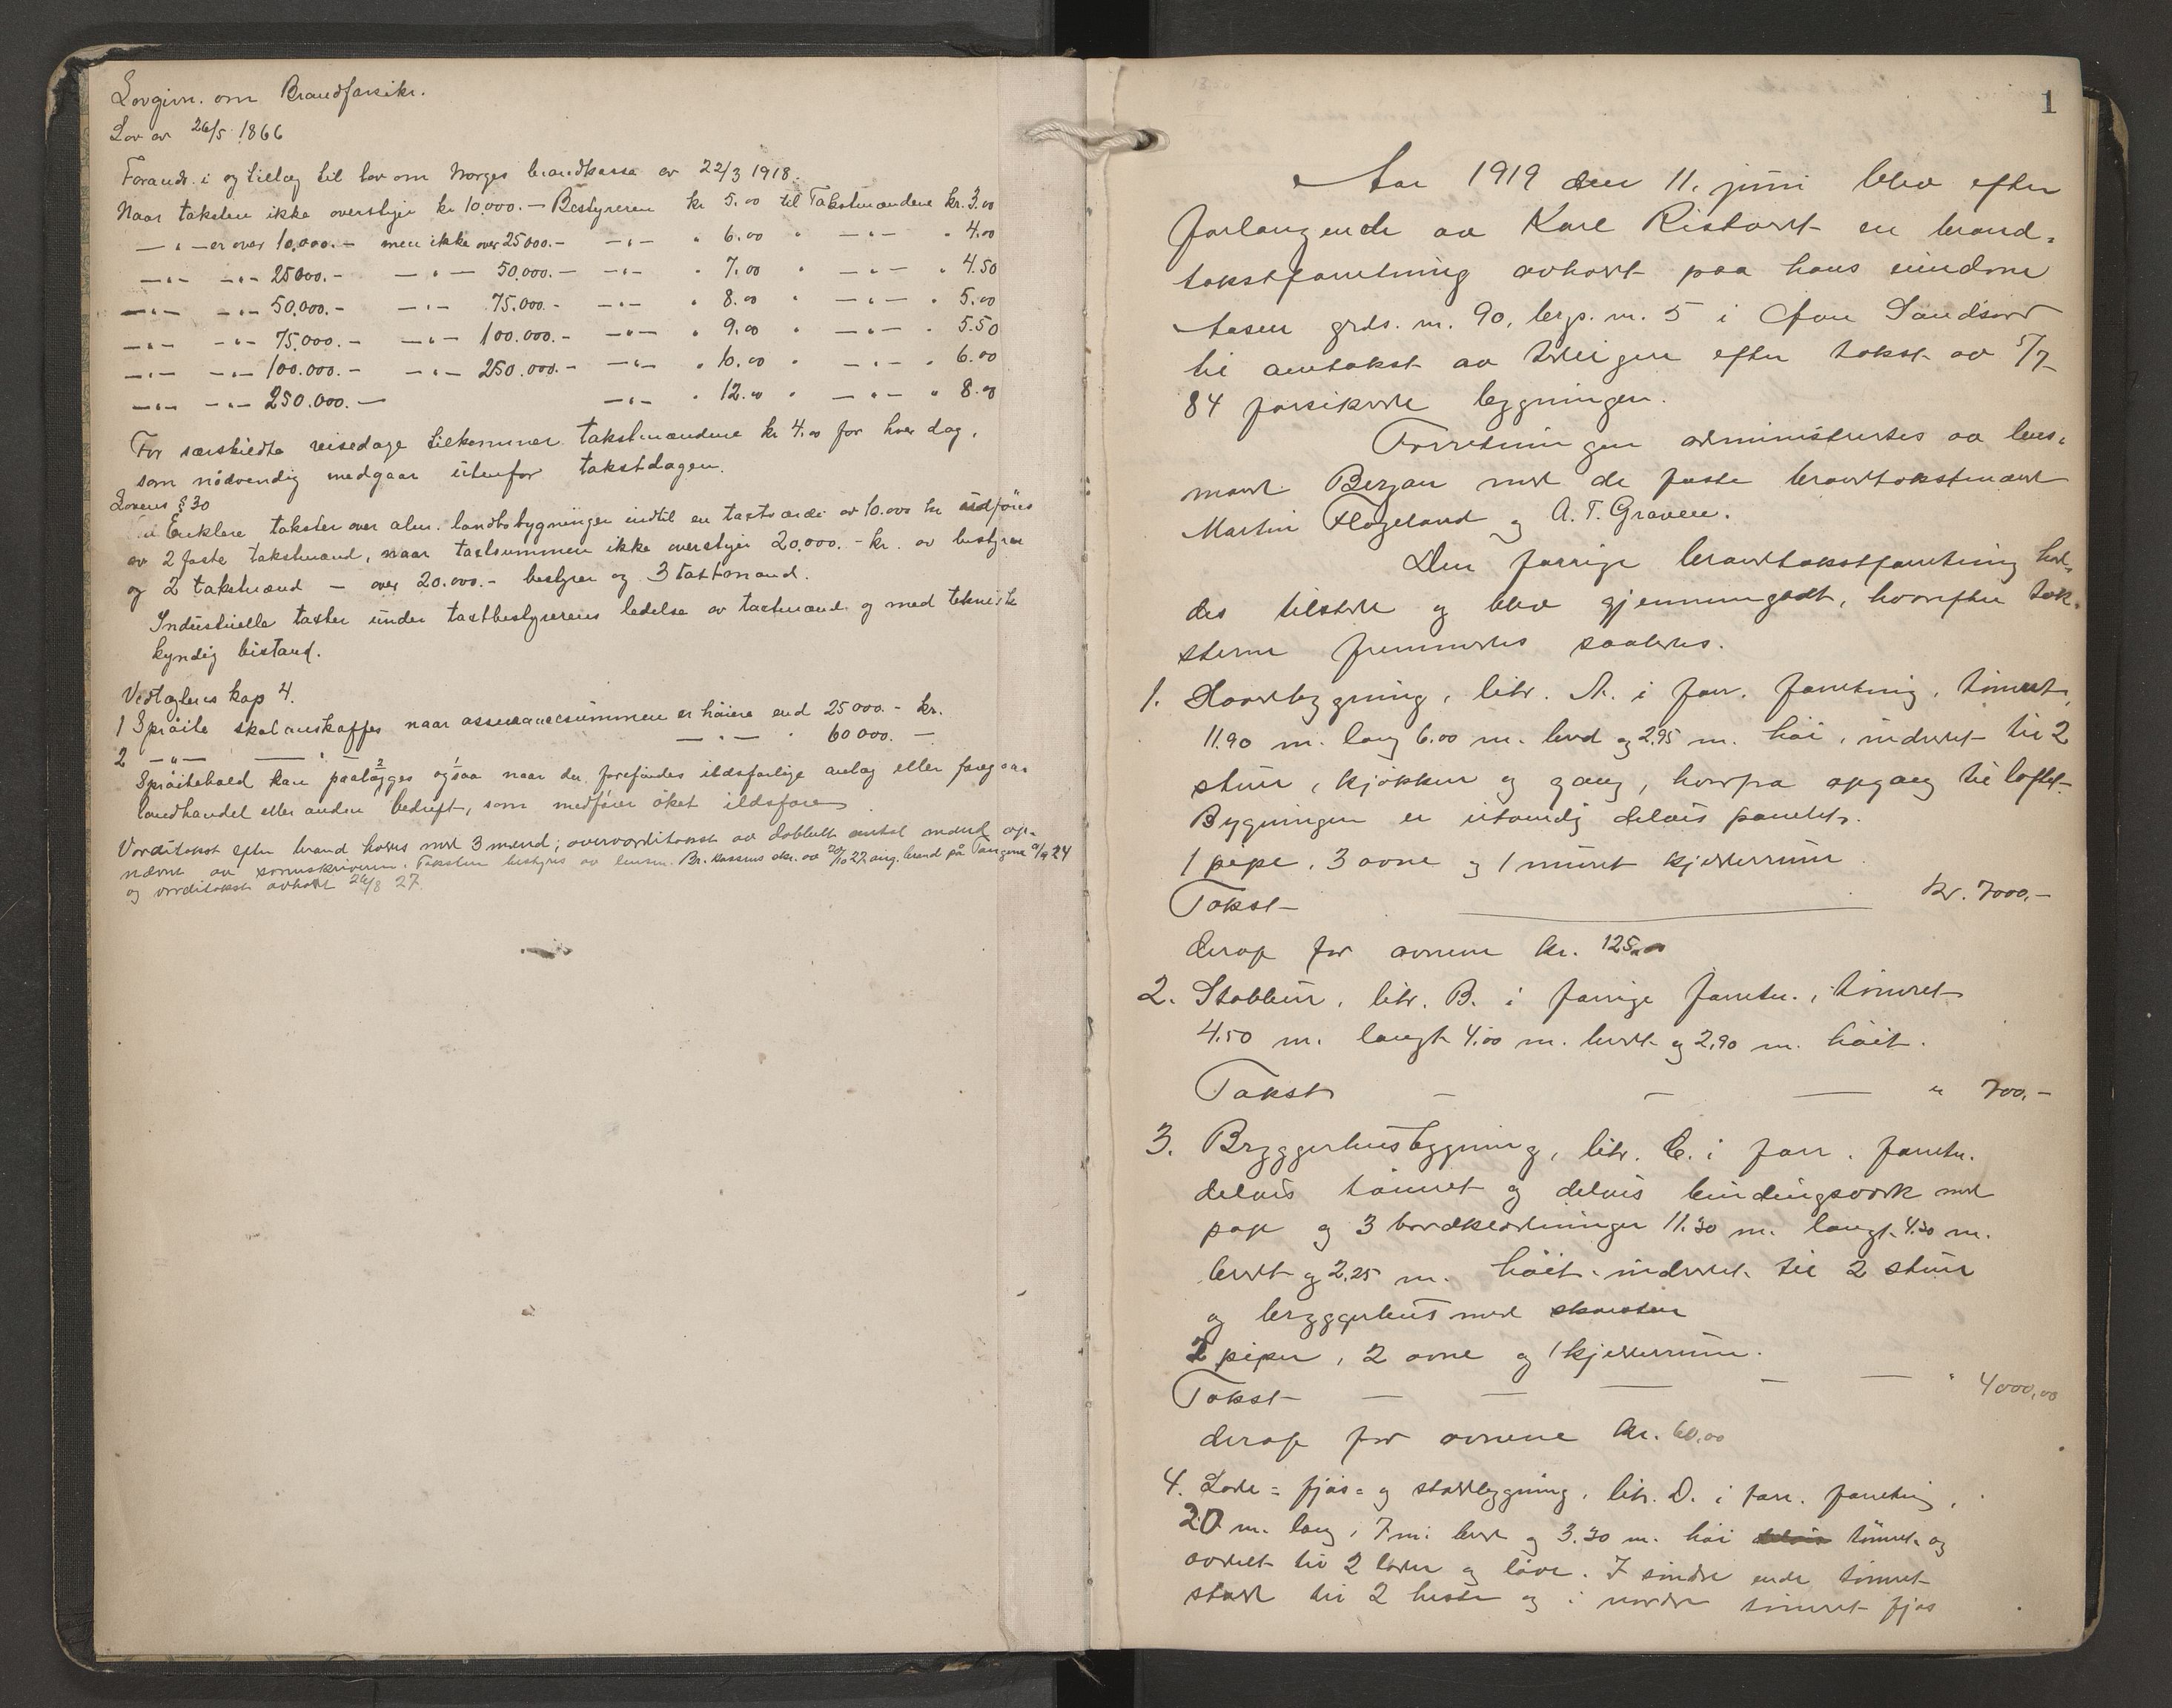 Lovgivn. om Brandforsikr.
Lov av 26/5 1866
Forandr. i og tillæg til lov om Norges brandkasse av 22/3 1918.
Naar taksten ikke overstiger kr 10.000.- Bestyreren kr 5.00 til Takstmændene kr. 3.00
— " — er over 10.000.- men ikke over 25000.- — " — " 6.00 " — " — " 4.00
— " — — " — 25000.- — " — 50.000.- — " — " 7.00 " — " — " 4.50
— " — — " — 50.000.- — " — 75.000.- — " — " 8.00 " — " — " 5.00
— " — — " — 75.000.- — " — 100.000.- — " — " 9.00 " — " — " 5.50
— " — — " — 100.000.- — " — 250.000.- — " — " 10.00 " — " — " 6.00
— " — — " — 250.000.- — " — " 12.00 " — " — " 8.00
For særskildte reisedage tilkommer takstmændene kr 4.00 for hver dag,
som nödvendig medgaar utenfor takstdagen.
Lovens § 30
Enklere takster over alm. landbobygninger indtil en takstværdi av 10.000 kr utföres
av 2 faste takstmænd, naar takstsummen ikke overstiger 20.000.- kr. av bestyrer
og 2 takstmænd — over 20.000.- bestyrer og 3 takstmænd.
Industrielle takster under takstbestyrerens ledelse av takstmænd og med teknisk
kyndig bistand.
Vedtægtens kap 4.
1 Spröite skal anskaffes naar assurancesummen er höiere end 25000.- kr.
2 — " — — " — — " — " 60000. —
Spröitehold kan paalægges ogsaa naar der forefindes ildsfarlige anlæg eller foregaar
landhandel eller anden bedrift, som medförer öket ildsfare
Værditakst efter brand holdes med 3 mænd; overværditakst av dobbelt antal mænd op-
nævnt av sorenskriveren. Taksten bestyres av lensm. Br. kassens skr. av 20/10 22 ang. brand på Tangene 9/9 24
og værditakst avholdt 26/8 27.
1
Aar 1919 den 11. juni blev efter
forlangende av Karl Ristavet en brand-
takstforretning avholdt paa hans eiendom
Aasen grds. nr. 90, brgs. nr. 5 i Övre Sandsvær
til omtakst av tidligere efter takst av 5/7
84 forsikrede bygninger.
Forretningen administrertes av lens-
mand Berzau med de faste brandtakstmænd
Martin Flogeland og A. T. Graven.
Den forrige brandtakstforretning had-
des tilstede og blev gjennemgaat, hvorefter tak-
sterne fremmedes saaledes.
1. Hovedbygning, litr. A. i forr. forretning, tömret,
11.90 m. lang 6.00 m. bred og 2,95 m. höi, indredet til 2
stuer, kjökken og gang, hvorfra opgang til loftet.
Bygningen er utvendig delvis panelet.
1 pipe, 3 ovne og 1 muret kjelderrum
Takst kr. 7000,-
derav for ovnene kr. 125,00
2. Stabbur, litr. B. i forrige forretn., tömret
4.50 m. langt 4.00 m. bredt og 2,90 m. höit.
Takst — — — " 700,-
3. Bryggerhusbygning, litr. C. i forr. forretn.
delvis tömret og delvis bindingsverk med
pap og 3 bordklædninger 11.30 m. langt 4.30 m.
bredt og 2.25 m. höit, indredet til 2 stuer
og bryggerhus med skorsten
2 piper, 2 ovne og 1 kjelderrum.
Takst — — — — — " 4000,00
derav for ovnene kr. 60,00
4. Lade- fjös- og staldbygning, litr. D. i forr. forretning,
20 m. lang, 7 m. bred og 3.30 m. höi delvis tömret og
avdelt til 2 lader og låve. I söndre ende tömret
stald til 2 heste og i nordre tömret fjös